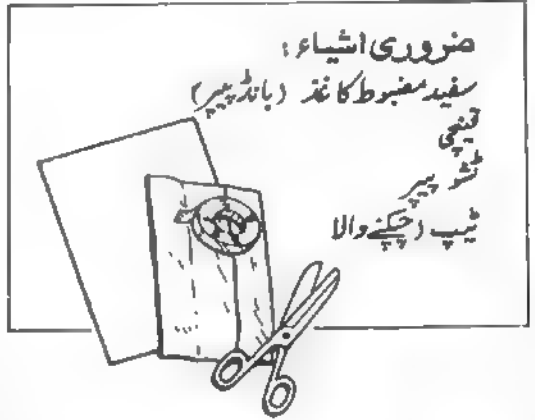 ضروری اشیاء :
سفید مضبوط کاغذ (بانڈ پیپر)
قینچی
ٹشو پیپر
ٹیپ (چپکنے والا